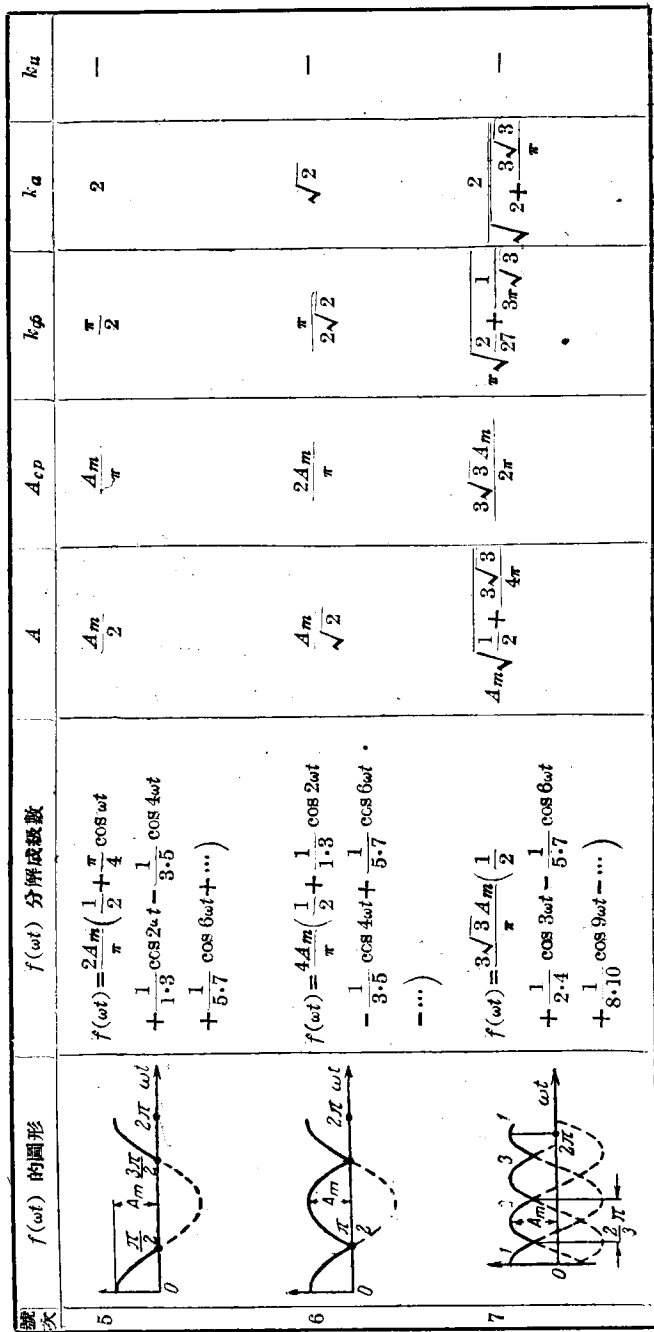 號次 f(ωt) 的圖形 f(ωt) 分解成級數 A A_cp k_ф k_a k_u
5
π/2 A_m 3π/2 2π ωt
0
f(ωt)=2A_m/π(1/2+π/4 cos ωt
+1/1·3 cos 2ωt−1/3·5 cos 4ωt
+1/5·7 cos 6ωt+⋯)
A_m/2
A_m/π
π/2
2
—
6
π/2 A_m 2π ωt
0
f(ωt)=4A_m/π(1/2+1/1·3 cos 2ωt
−1/3·5 cos 4ωt+1/5·7 cos 6ωt
−⋯)
A_m/√2
2A_m/π
π/2√2
√2
—
7
1 2 3 1
A_m
0 2π ωt
2/3 π
f(ωt)=3√3 A_m/π(1/2
+1/2·4 cos 3ωt−1/5·7 cos 6ωt
+1/8·10 cos 9ωt−⋯)
A_m√(1/2+3√3/4π)
3√3 A_m/2π
π√(2/27+1/3π√3)
2/√(2+3√3/π)
—